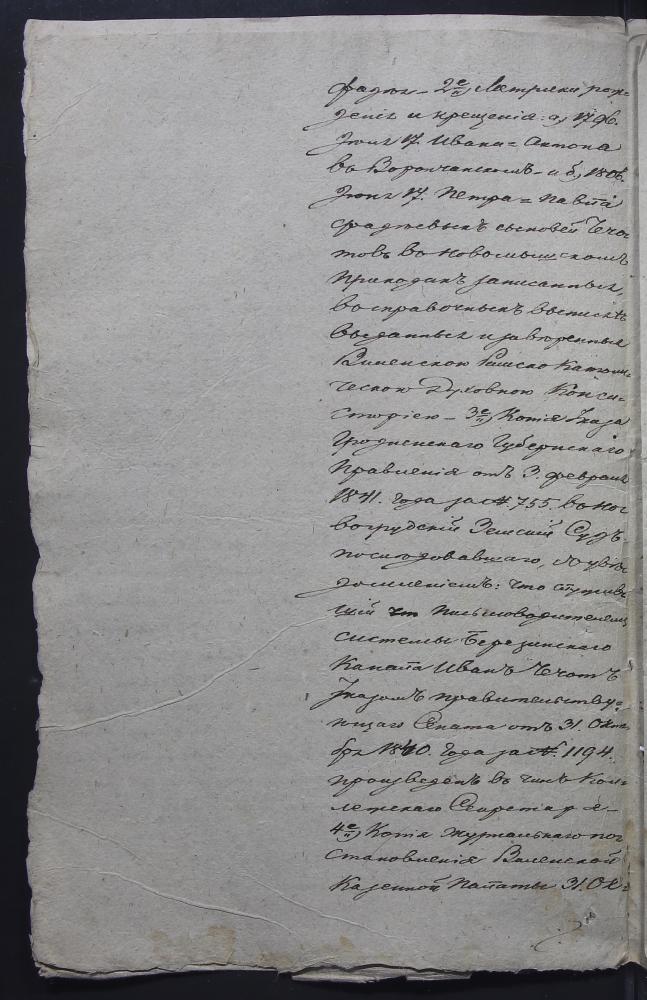 фадѣя – 2е) Метрики рож-
денія и крещенія: а) 1796.
Іюля 17. Ивана-Антона
въ Ворончанскомъ – и б) 1806.
Іюня 17. Петра-Павла
Фадѣевыхъ сыновей Чечо-
товъ въ Новомышскомъ
приходахъ записанныхъ,
въ справочныхъ выпискахъ
выданныя и завѣренныя
Виленскою Римско Католи-
ческою Духовною Конси-
сторіею – 3е) Копія Указа
Гродненскаго Губернскаго
Правленія отъ 3. февраля
1841. года за №. 755. въ Но-
вогрудскій Земскій Судъ
послѣдовавшаго, съ увѣ-
домленіемъ: что служив-
шій Письмоводителемъ
системы Березинскаго
Канала Иванъ Чечотъ
Указомъ правительству-
ющаго Сената отъ 31. Октя-
бря 1840. года за №. 1194.
произведенъ въ чинъ Кол-
лежскаго Секретаря –
4е) Копія журнальнаго пос-
тановленія Виленской
Казенной Палаты 31. Ок-